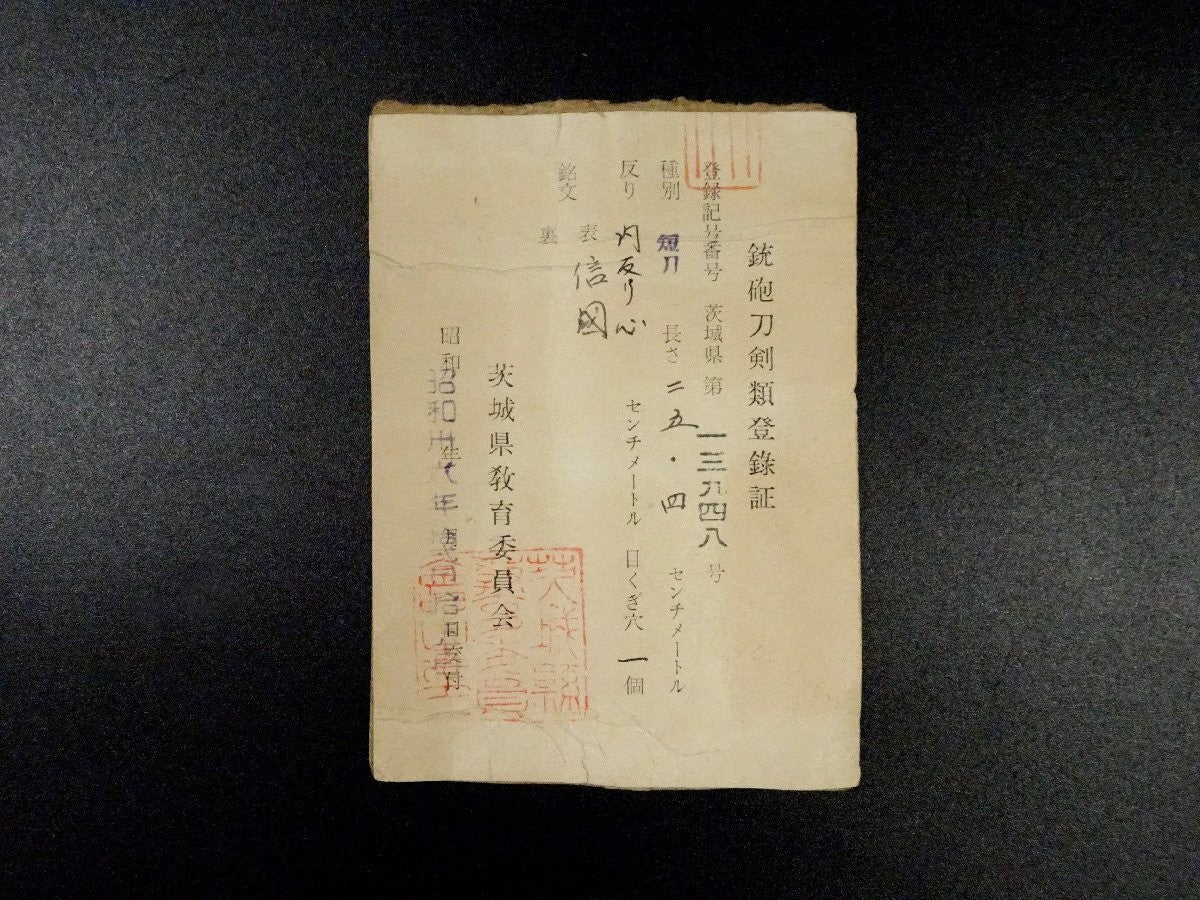 銃砲刀剣類登録証
登録記号番号 茨城県 第 一三九四八 号
種別 短刀 長さ 二五・四 センチメートル
反り 内反り心 センチメートル 目くぎ穴 一 個
銘文 表 信國
裏
茨城県教育委員会
昭和卅八年 月 拾日交付